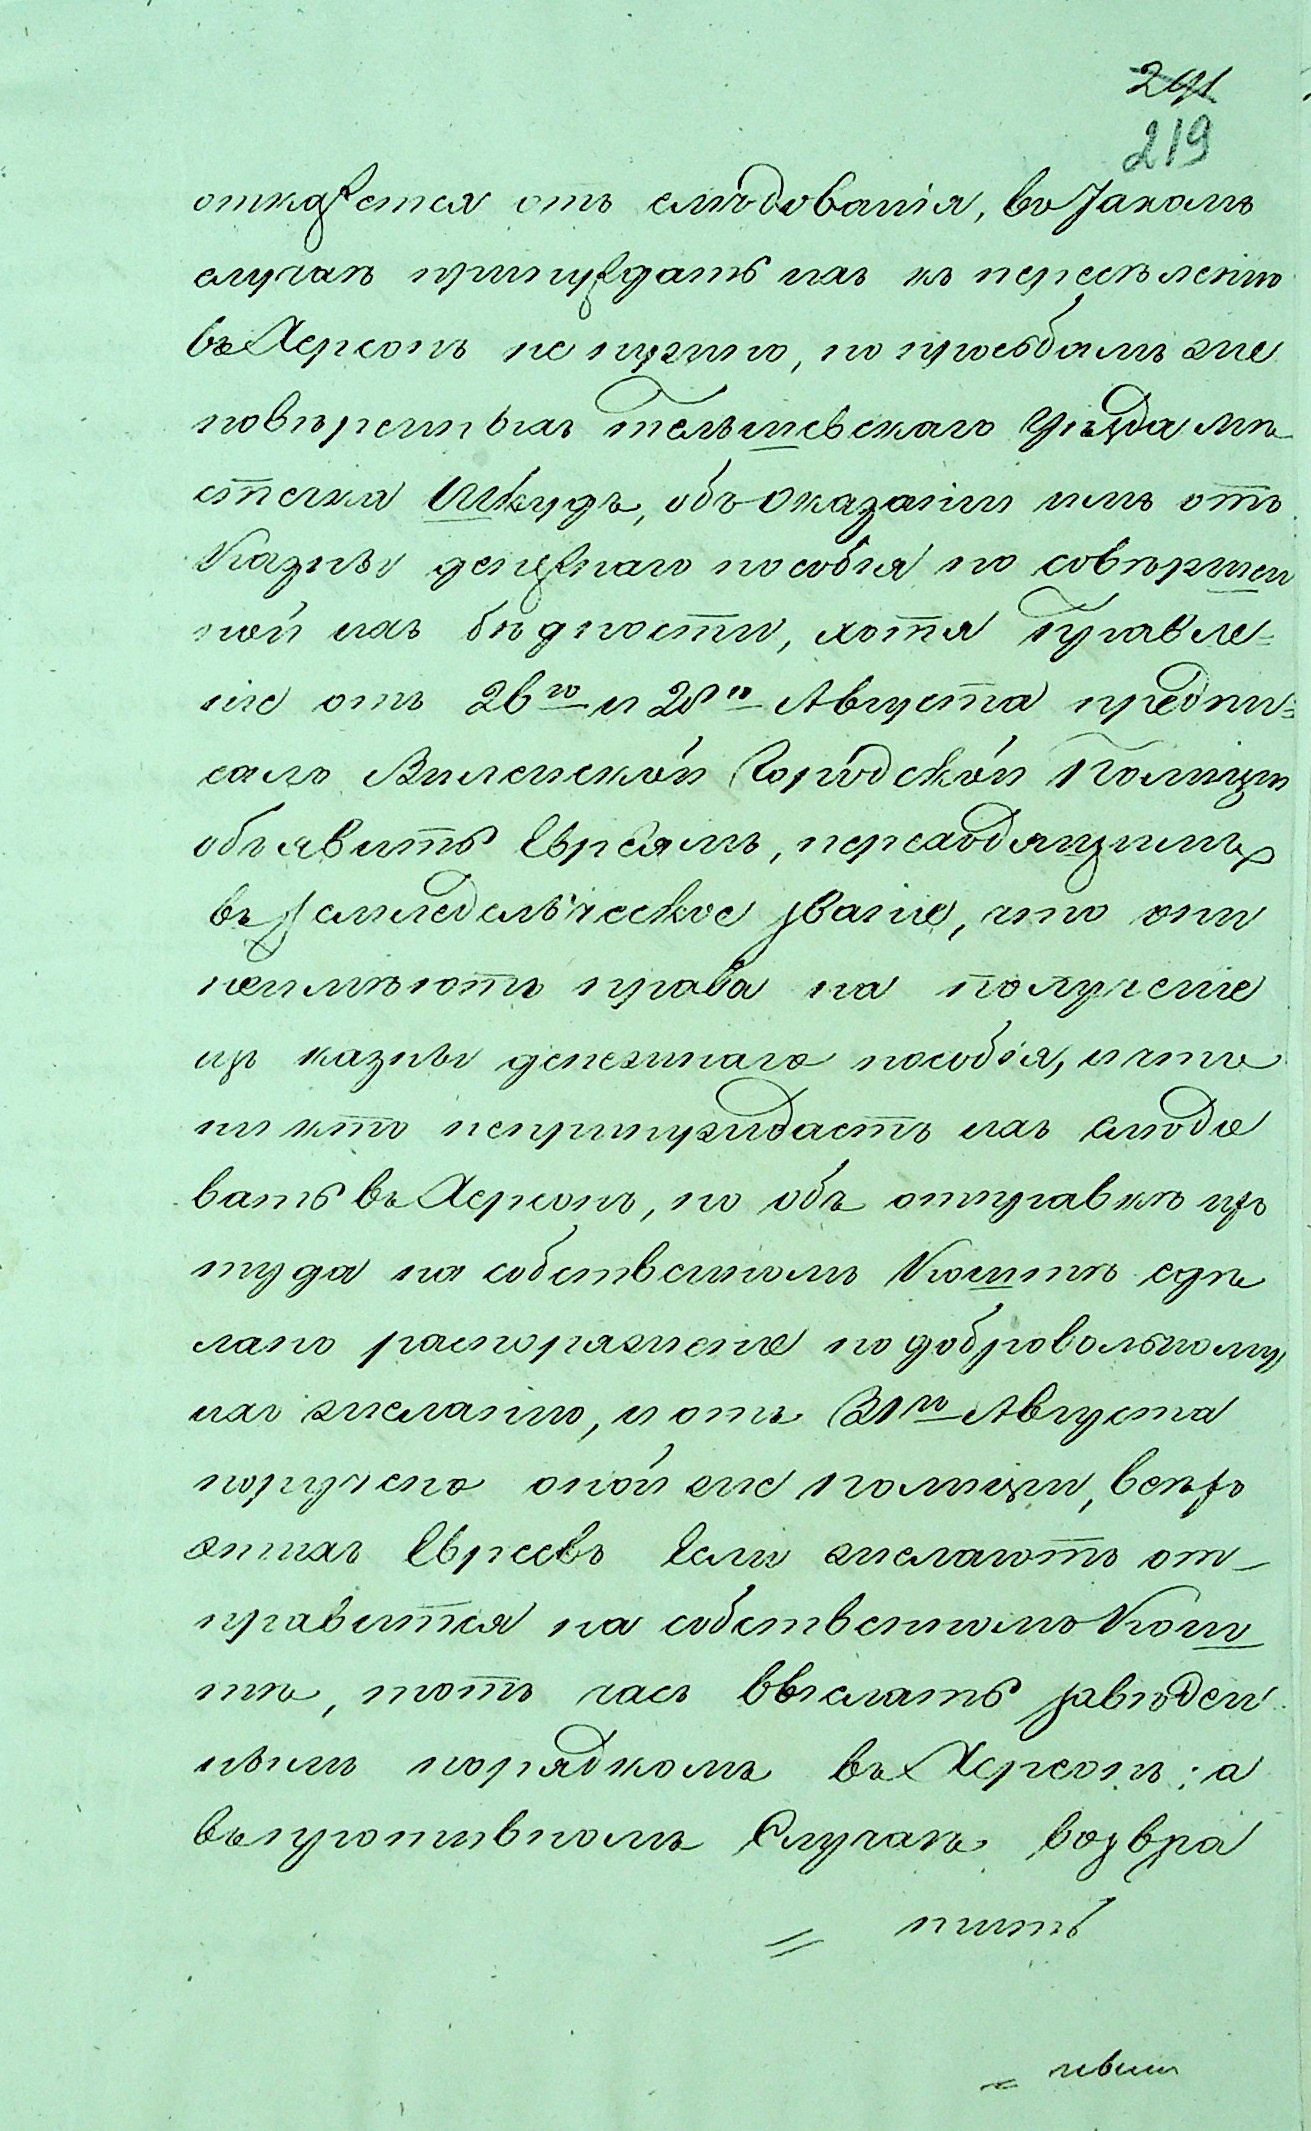 291
219
откажется отъ слѣдованія, во такомъ
случаѣ принуждать ихъ къ переселенію
въ Херсонъ не нужно, по прозьбамъ же
повѣренныхъ Тельшевскаго Уѣзда мѣ
стечка Шкудъ, объ оказаніи имъ отъ
Казны денежнаго пособія по совершен
ной ихъ бѣдности, хотя Правле=
ніе отъ 26го и 28го Августа предпи=
сало Виленской Городской Полиціи
объявить Евреямъ, переходящимъ
въ земледельческое званіе, что они
неимѣютъ права на полученіе
изъ казны денежнаго пособія, и что
ни кто непринуждаетъ ихъ слѣдо
вать въ Херсонъ, но объ отправкѣ ихъ
туда на собственномъ Коштѣ сдѣ
лано распоряженіе по добровольному
ихъ желанію, и отъ 31го Августа
поручено оной же полиціи, всѣхъ
этихъ Евреевъ Если желаютъ от-
правится на собственномъ Кош
тѣ, тотъ часъ выслать заведен
нымъ порядкомъ въ Херсонъ; а
въ противномъ Случаѣ возвра
= тить